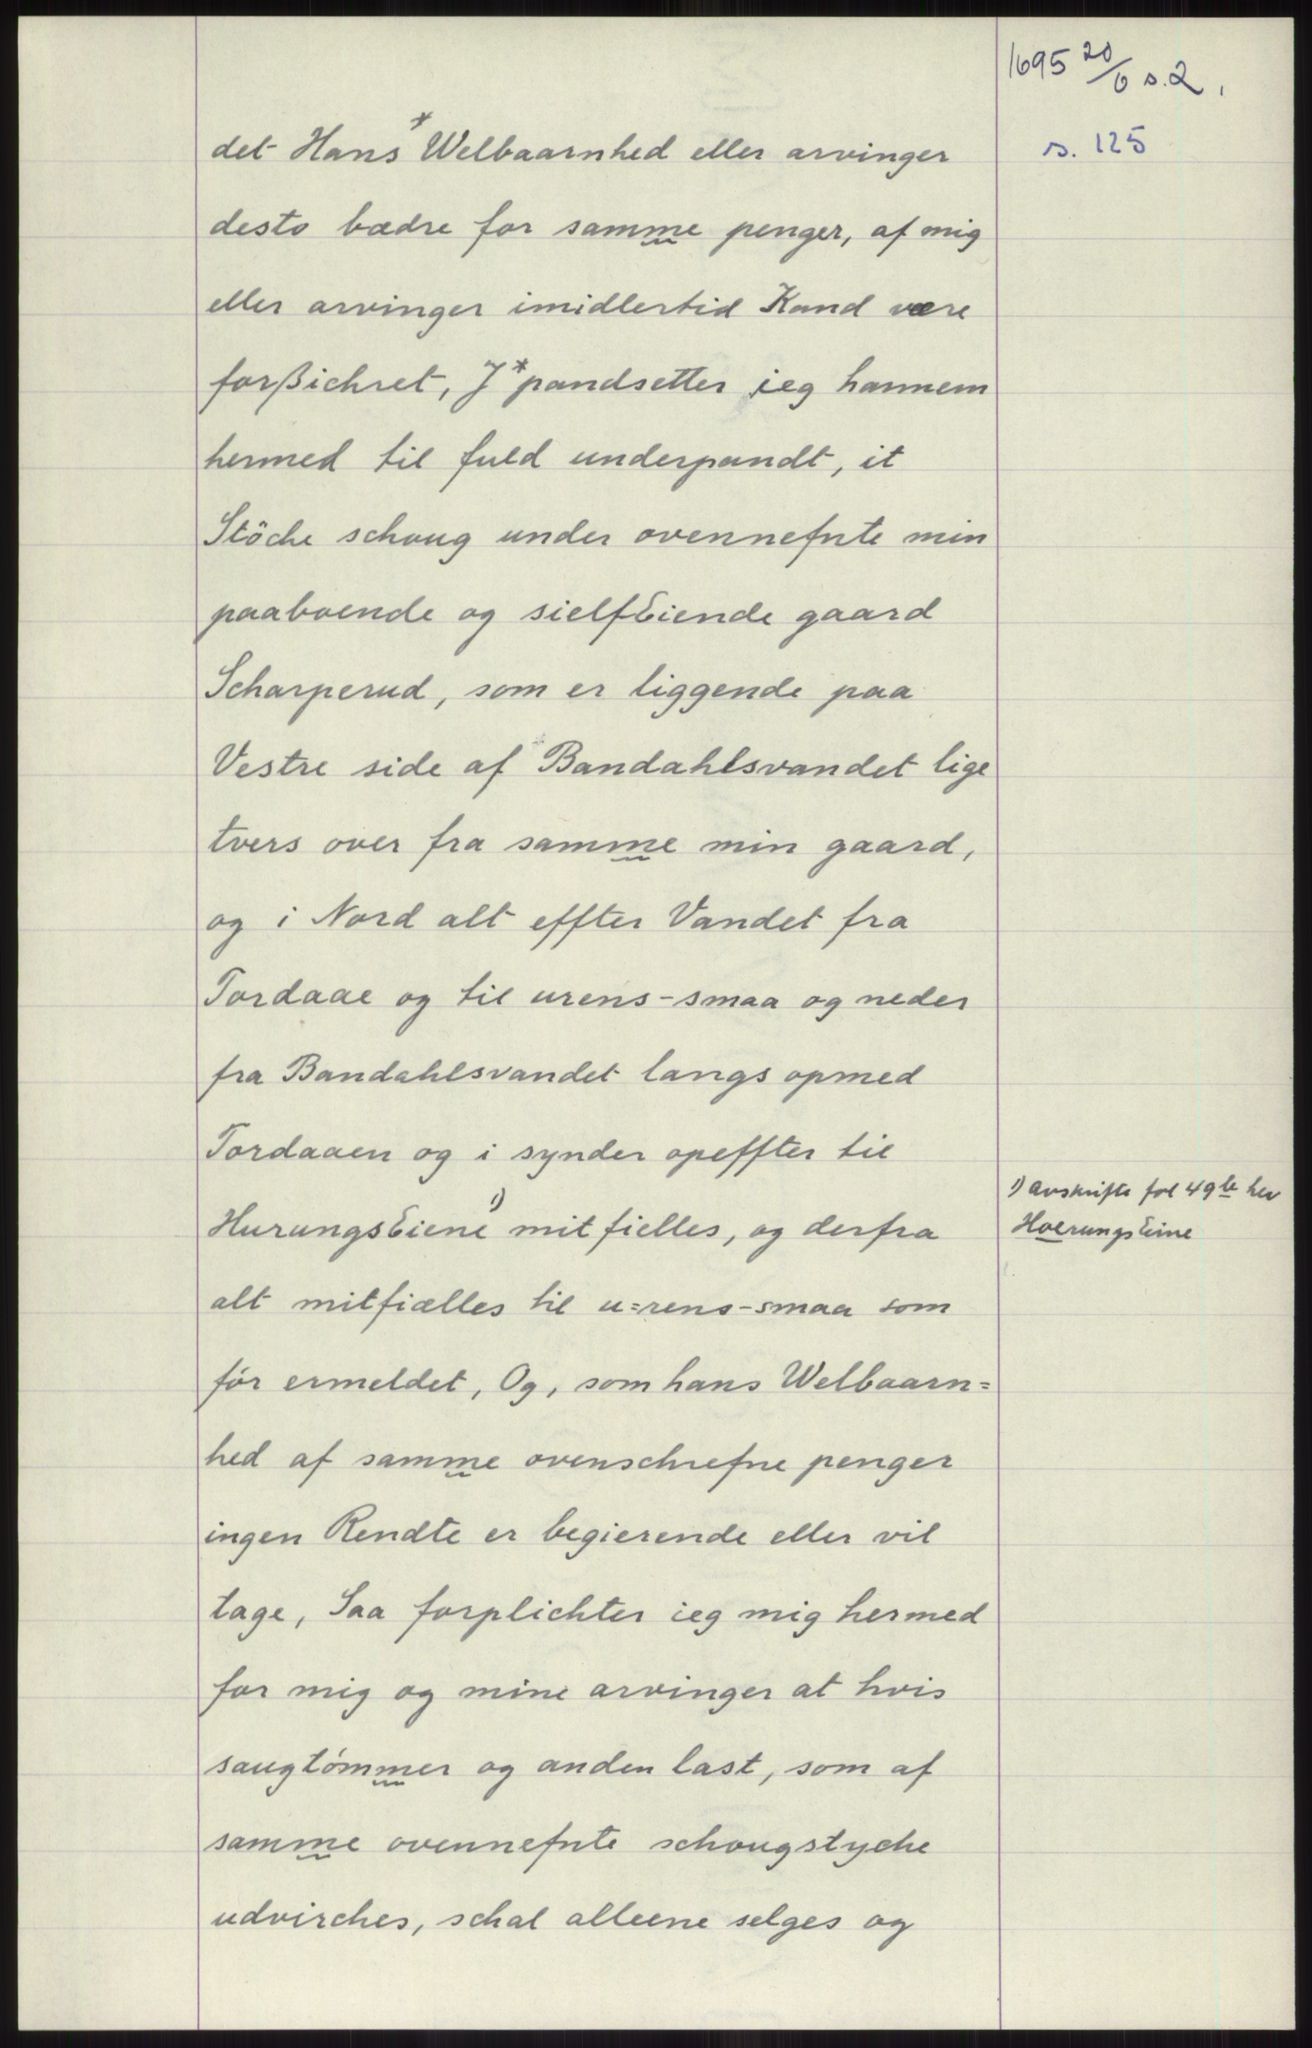 1695 20/6 s. 2.
s. 125
det Hans* Welbaarnhed eller arvinger
desto bædre for samme penger, af mig
eller arvinger imidlertid Kand være
forßichret, J* pandsetter jeg hannem
hermed til fuld underpandt, it
Stöche schoug under ovennefnte min
paaboende og sielfEiende gaard
Scharperud, som er liggende paa
Vestre side af Bandahlsvandet lige
tvers over fra samme min gaard,
og i Nord alt effter Vandet fra
Tordaae og til urens-smaa og neder
fra Bandahlsvandet langs opmed
Tordaaen og i synder opeffter til
HurungsEiene 1) mitfielles, og derfra
1) avskrifts fol 49 b har
HoerungsEine
alt mitfiælles til u=rens-smaa som
för ermeldet, Og, som hans Welbaarn=
hed af samme ovenschrefne penger
ingen Rendte er begierende eller vil
tage, Saa forplichter ieg mig hermed
for mig og mine arvinger at hvis
saugtömmer og anden last, som af
samme ovennefnte schougstyche
udvirches, schal alleene selges og